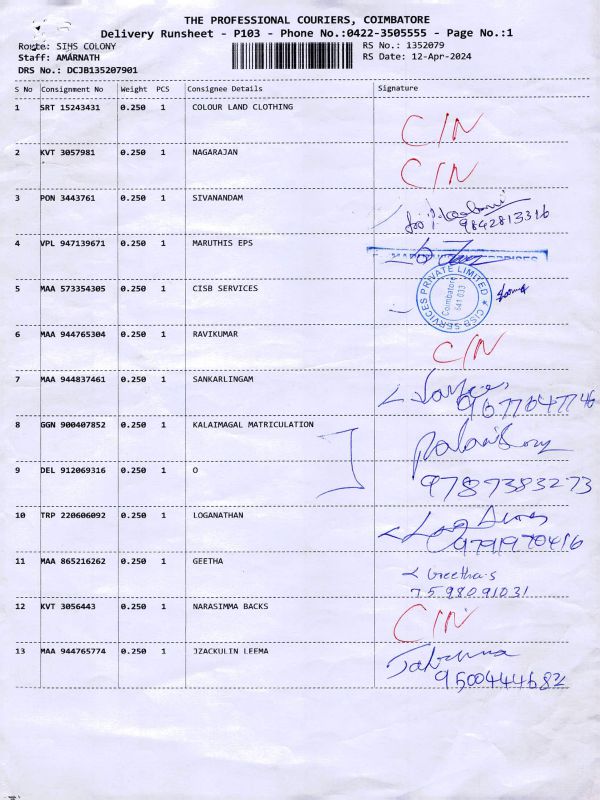 THE PROFESSIONAL COURIERS, COIMBATORE
Delivery Runsheet - P103 - Phone No.:0422-3505555 - Page No.:1
Route: SIHS COLONY
RS No.: 1352079
Staff: AMARNATH
RS Date: 12-Apr-2024
DRS No.: DCJB135207901
S No Consignment No Weight PCS Consignee Details Signature
1 SRT 15243431 0.250 1 COLOUR LAND CLOTHING
C/N
2 KVT 3057981 0.250 1 NAGARAJAN
C/N
3 PON 3443761 0.250 1 SIVANANDAM
9842813316
4 VPL 947139671 0.250 1 MARUTHIS EPS
5 MAA 573354305 0.250 1 CISB SERVICES
CISB SERVICES PRIVATE LIMITED
Coimbatore
641 033
6 MAA 944765304 0.250 1 RAVIKUMAR
C/N
7 MAA 944837461 0.250 1 SANKARLINGAM
9677047746
8 GGN 900407852 0.250 1 KALAIMAGAL MATRICULATION
9 DEL 912069316 0.250 1 O
9787383273
10 TRP 220606092 0.250 1 LOGANATHAN
9791970416
11 MAA 865216262 0.250 1 GEETHA
Geetha.s
7598091031
12 KVT 3056443 0.250 1 NARASIMMA BACKS
C/N
13 MAA 944765774 0.250 1 JZACKULIN LEEMA
9500444682